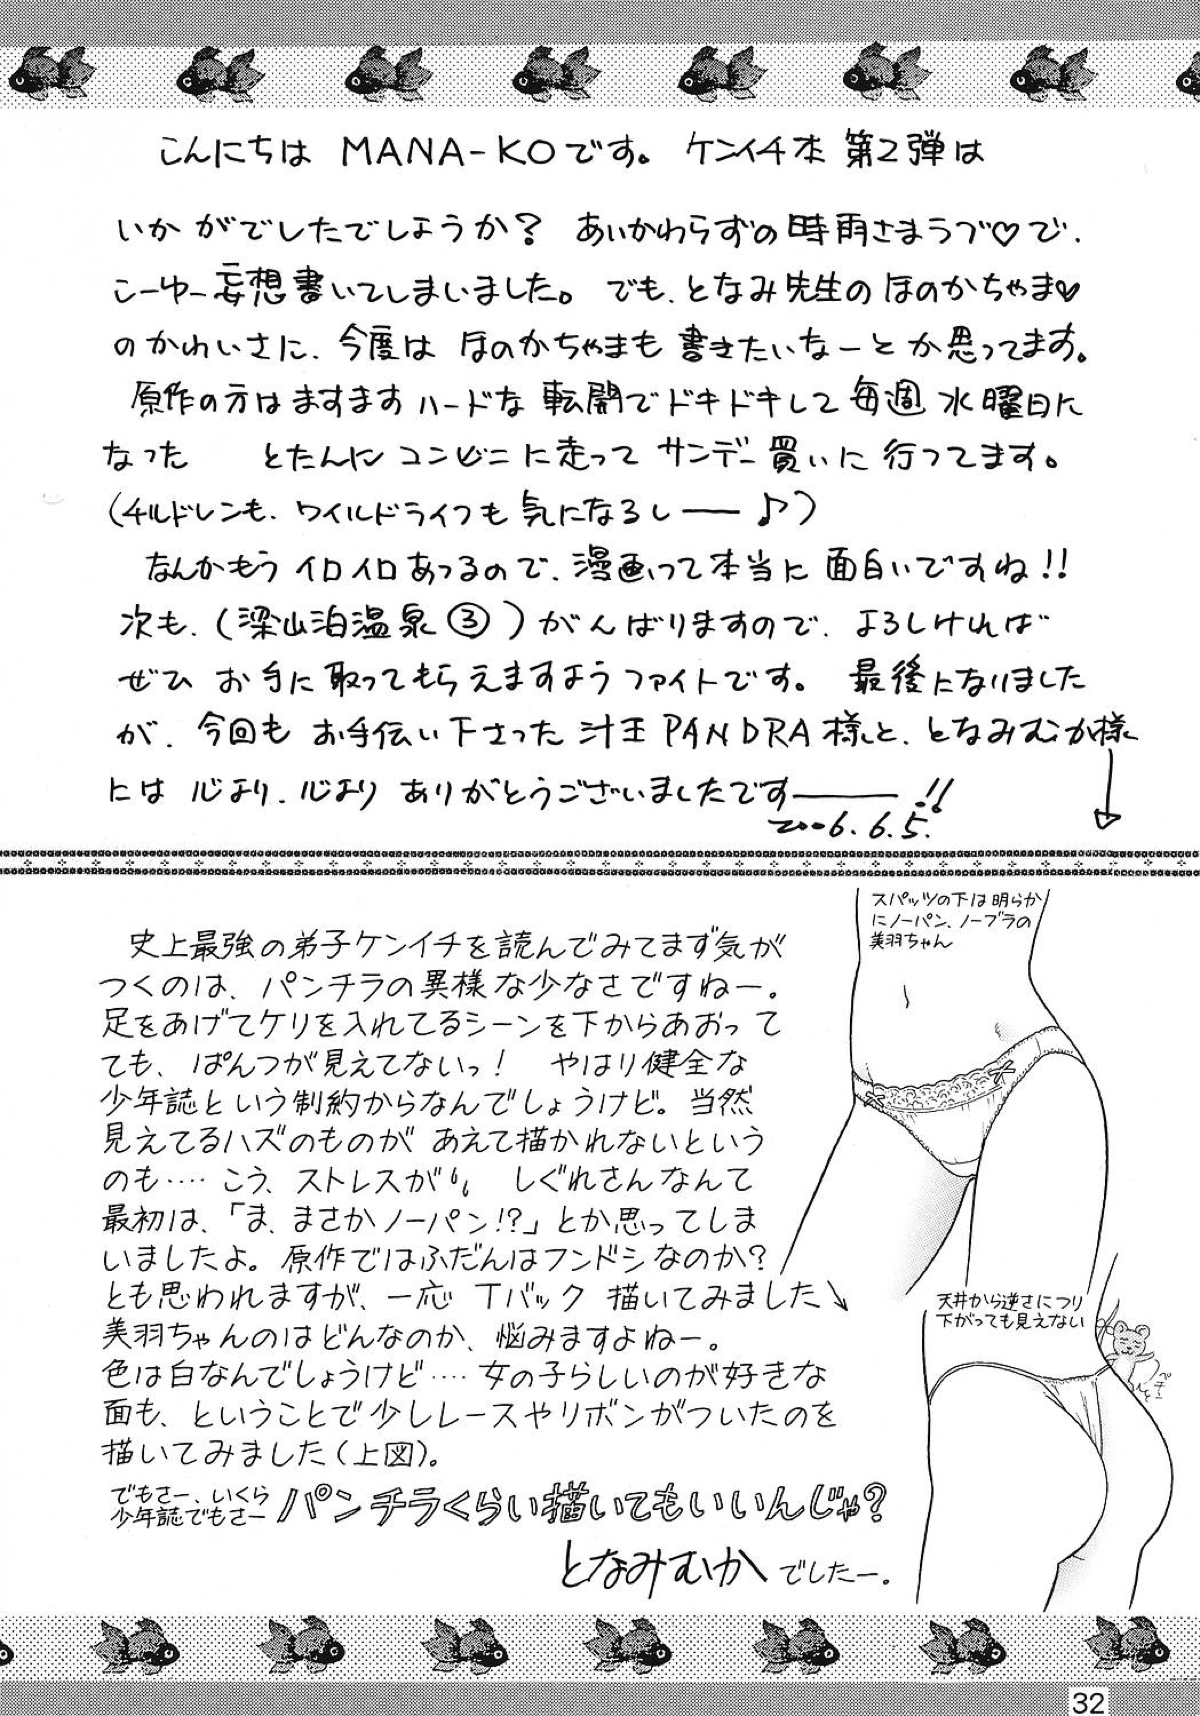 こんにちは MANA-KOです。 ケンイチ本 第2弾は
いかがでしたでしょうか? あいかわらずの時雨さまラブ♡で、
こーゆー妄想書いてしまいました。でも、となみ先生のほのかちゃま♡
のかわいさに、今度は ほのかちゃまも 書きたいなーとか思ってます。
原作の方はますますハードな 転開でドキドキして毎週 水曜日に
なった とたんに コンビニに走って サンデー買いに 行ってます。
(チルドレンも、ワイルドライフも気になるしー♪)
なんかもう イロイロあっるので、漫画って本当に 面白いですね!!
次も、(梁山泊温泉③)がんばりますので、よろしければ
ぜひ お手に取ってもらえますようファイトです。 最後になりました
が、今回も お手伝い下さった 汁王PANDRA様と、となみむか様
には 心より、心より ありがとうございましたですー!!
2006.6.5.
史上最強の弟子ケンイチを読んでみてまず気が
つくのは、パンチラの異様な少なさですねー。
足をあげてケリを入れてるシーンを下からあおって
ても、ぱんつが見えてないっ! やはり健全な
少年誌という制約からなんでしょうけど。当然
見えてるハズのものが あえて描かれないという
のも‥‥こう、ストレスが しぐれさんなんて
最初は、「ま、まさかノーパン!?」とか思ってしま
いましたよ。原作ではふだんはフンドシなのか?
とも思われますが、一応 Tバック 描いてみました↘
美羽ちゃんのはどんなのか、悩みますよねー。
色は白なんでしょうけど‥‥女の子らしいのが好きな
面も、ということで少しレースやリボンがついたのを
描いてみました(上図)。
でもさー、いくら
少年誌でもさー パンチラくらい描いてもいいんじゃ?
となみむか でしたー。
スパッツの下は明らか
にノーパン、ノーブラの
美羽ちゃん
天井から逆さにつり
下がっても見えない
32